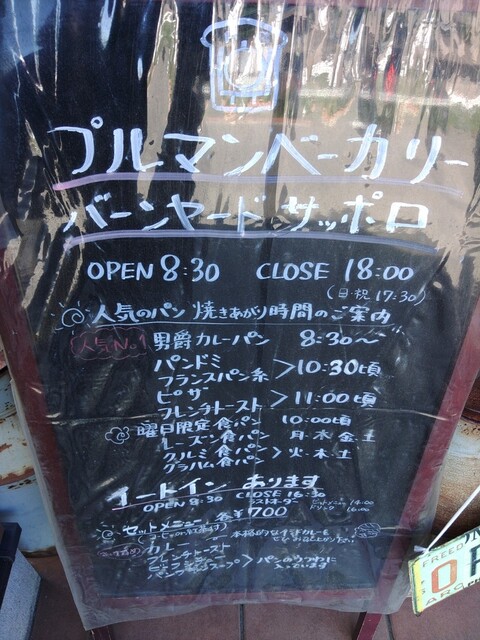 プルマンベーカリー
バーンヤードサッポロ
OPEN 8:30 CLOSE 18:00
(日・祝 17:30)
人気のパン 焼きあがり時間のご案内
人気No.1 男爵カレーパン 8:30〜
パンドミ
フランスパン系 > 10:30頃
ピザ
フレンチトースト > 11:00頃
曜日限定食パン 10:00頃
レーズン食パン 月・木・金・土
クルミ食パン
グラハム食パン > 火・木・土
イートイン あります
OPEN 8:30 CLOSE 16:30
ラストオーダー
14:00
16:00
セットメニュー 各¥700
カレー
フレンチトースト
スープ > パンのうつわに
入っています
FREED